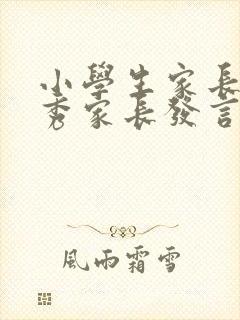 小學生家長
秀家長發言
風雨霜雪